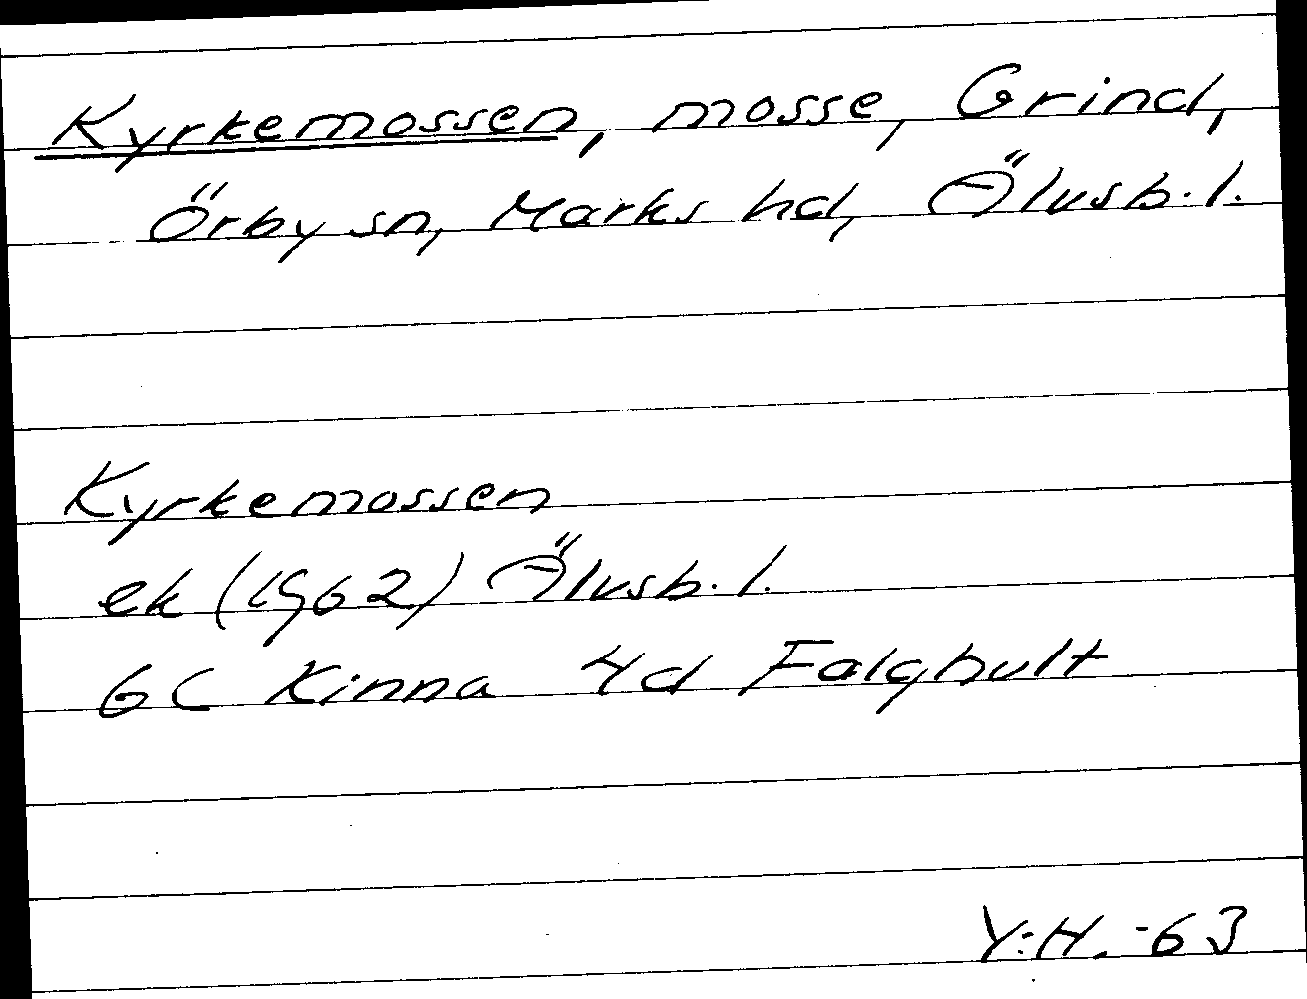 Kyrkemossen, mosse, Grind,
Örby sn, Marks hd, Älvsb. l.
Kyrkemossen
ek (1962) Älvsb. l.
6C Kinna 4d Falghult
Y:H. -63